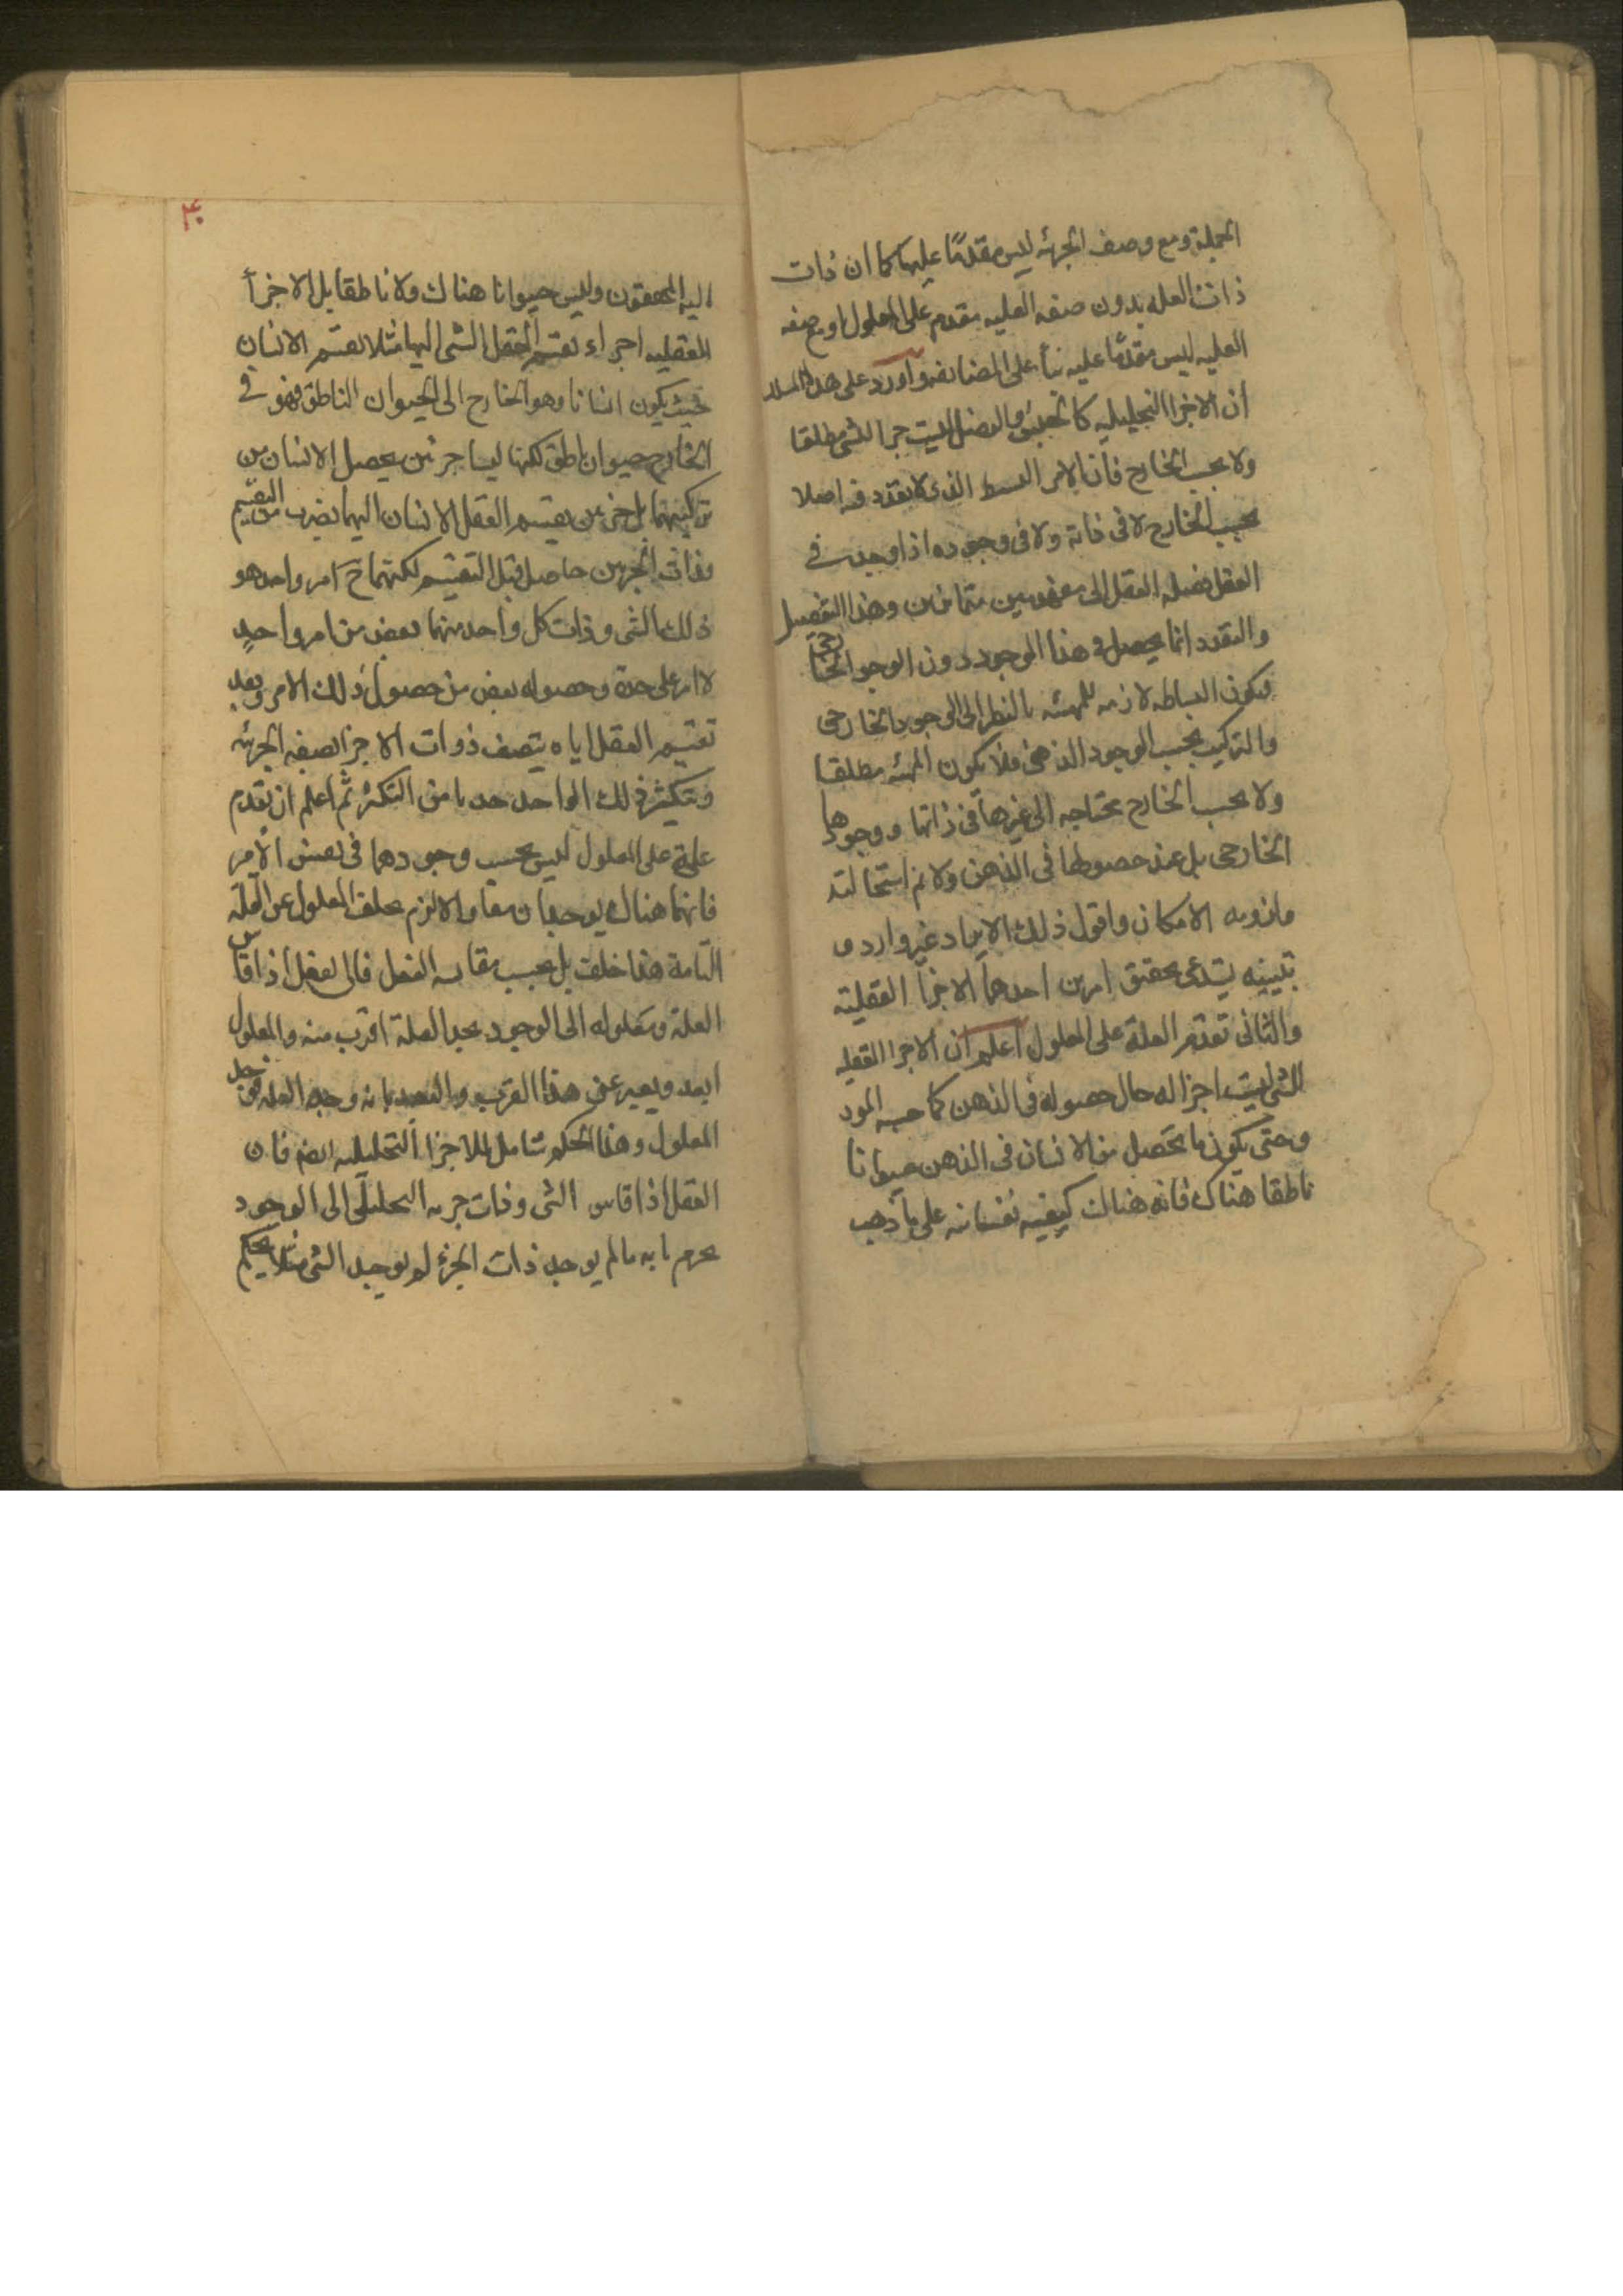 الجملة ومع وصف الجزئيه ليس مقدمًا عليها كما ان ذات
ذات العله بدون صفه العليه مقدم على المعلول ومع صفه
العليه ليس مقدمًا عليه بنأ على المضايفه وآورد على هذا
أن الاجزا التحليليه كالجنس والفصل ليست جزا للشى مطلقا
ولا بحسب الخارج فان الامر البسيط الذى لا تعدد فيه اصلا
بحسب الخارج لا فى ذاته ولا فى وجوده اذا وجدت في
العقل فصله العقل الى مفهومين متمايزين وهذا التفصيل
والتعدد انما يحصل فى هذا الوجود دون الوجود الخارجى
فيكون البساطه لازمه للمهيه بالنظر الى الوجود الخارجى
والتركيب بحسب الوجود الذهنى فلا يكون المهيه مطلقا
ولا بحسب الخارج محتاجه الى غيرها فى ذاتها ووجودها
الخارجى بل عند حصولها فى الذهن ولا نم استحالته
ولزومه الامكان واقول ذلك الايراد غير وارد و
تبيينه يستدعى تحقيق امرين احدهما الاجزأ العقليّة
والثانى تقدّم العلة على المعلول اعلم ان الاجزا العقليه
للشى ليست اجزا له حال حصوله فى الذهن كما حسبه المورد
وحتى يكون ما يحصل من الانسان فى الذهن حيوانا
ناطقا هناك فانه هناك كيفيه نفسانيه على ما ذهب
اليه المحققون وليس حيوانا هناك ولا ناطقا بل الاجزأ
العقليه اجزاء تقسّم العقل الشى اليها مثلا تقسّم الانسان
حيث يكون انسانا وهو الخارج الى الحيوان الناطق فهو في
الخارج حيوان ناطق لكنهما ليسا جزئين يحصل الانسان من
تركيبهما بل جزئين يقسم العقل الانسان اليهما بضرب من التقسيم
وذات الجزئين حاصل قبل التقسيم لكنهما ح امر واحد هو
ذلك الشى وذات كل واحد منهما بعض من امر واحدٍ
لا امر على حدة وحصوله بعض من حصول ذلك الامر وبعد
تقسيم العقل اياه يتصف ذوات الاجزا بصفه الجزئيه
ويتكثر ذلك الواحد حدبا من التكثر ثم اعلم ان تقدم
علة على المعلول ليس بحسب وجودهما فى نفس الأمر
فانهما هناك يوجدان معا والا لزم تخلف المعلول عن العلّة
التامة هذا خلف بل بحسب مقايسه العقل فان العقل اذا قاس
العلة ومعلوله الى الوجود يجد العلة اقرب منه والمعلول
ابعد ويعبر عن هذا القرب والبعد بانه وجد العله فوجد
المعلول وهذا الحكم شامل للاجزا التحليليه ايضا فان
العقل اذا قاس الشى وذات جزئه التحليلّى الى الوجود
يجزم بانه ما لم يوجد ذات الجزء لم يوجد الشى مثلا يحكم